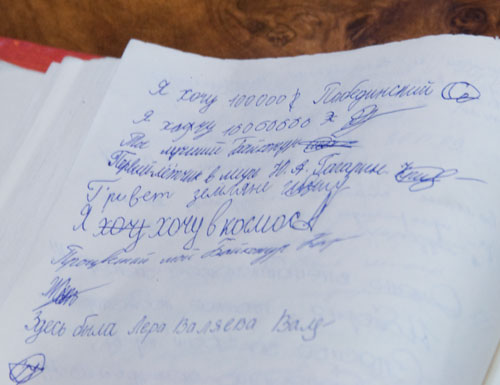 Я хочу 100000 Побединский
Я хочу 10000000
Ты лучший Байконур
Первый летчик в мире Ю. А. Гагарин
Привет земляне
Я хочу хочу в космос
Процветай мой Байконур
Здесь была Лера Валяева